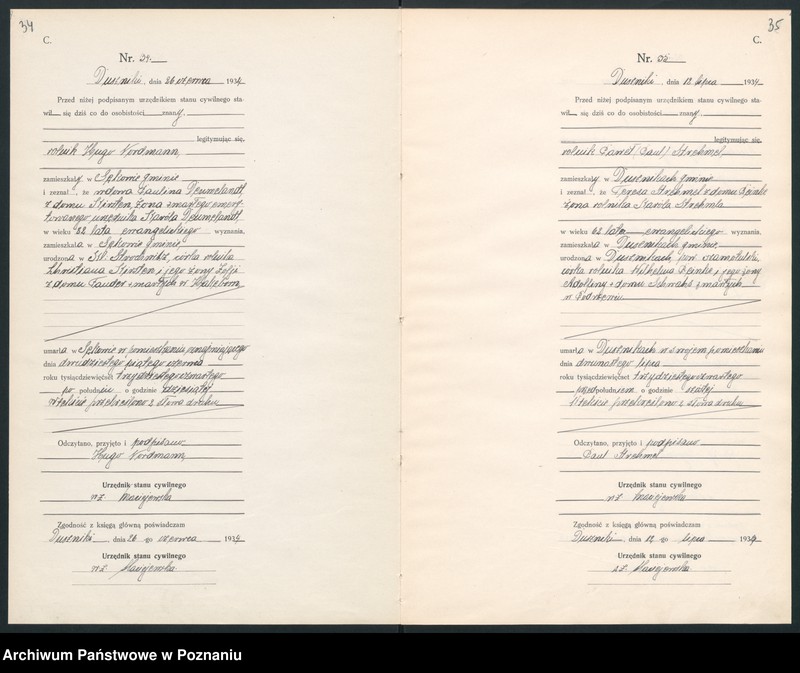 34
C.
Nr. 34.
Duszniki, dnia 26 czerwca 1934
Przed niżej podpisanym urzędnikiem stanu cywilnego sta-
wił się dziś co do osobistości znany,
legitymując się,
rolnik Hugo Nordmann,
zamieszkały w Sękowie gminie
i zeznał, że wdowa Paulina
z domu żona zmarłego emery-
towanego Karola
w wieku 82 lata ewangelickiego wyznania,
zamieszkała w Sękowie gminie,
urodzona w córka rolnika
i jego żony Zofji
z domu zmarłych w
umarła w Sękowie w pomieszkaniu zeznającego
dnia dwudziestego piątego czerwca
roku tysiącdziewięćset trzydziestego czwartego
po południu o godzinie dziesiątej
przekreślono 2 słowa druku
Odczytano, przyjęto i podpisano
Hugo Nordmann,
Urzędnik stanu cywilnego
w z. Maciejewska
Zgodność z księgą główną poświadczam
Duszniki, dnia 26 go czerwca 1934
Urzędnik stanu cywilnego
w z. Maciejewska
35
C.
Nr. 35
Duszniki, dnia 12 lipca 1934
Przed niżej podpisanym urzędnikiem stanu cywilnego sta-
wił się dziś co do osobistości znany,
legitymując się,
rolnik Paweł (Paul) Strehmel
zamieszkały w Dusznikach gminie
i zeznał, że Teresa Strehmel z domu
żona rolnika Karola Strehmla
w wieku 62 lata ewangelickiego wyznania,
zamieszkała w Dusznikach gminie,
urodzona w Dusznikach, pow. szamotulski,
córka rolnika Wilhelma i jego żony
z domu zmarłych
w
umarła w Dusznikach w swojem pomieszkaniu
dnia dwunastego lipca
roku tysiącdziewięćset trzydziestego czwartego
przed południem o godzinie szóstej
przekreślono 2 słowa druku
Odczytano, przyjęto i podpisano
Paul Strehmel
Urzędnik stanu cywilnego
w z. Maciejewska
Zgodność z księgą główną poświadczam
Duszniki, dnia 12 go lipca 1934
Urzędnik stanu cywilnego
w z. Maciejewska
Archiwum Państwowe w Poznaniu